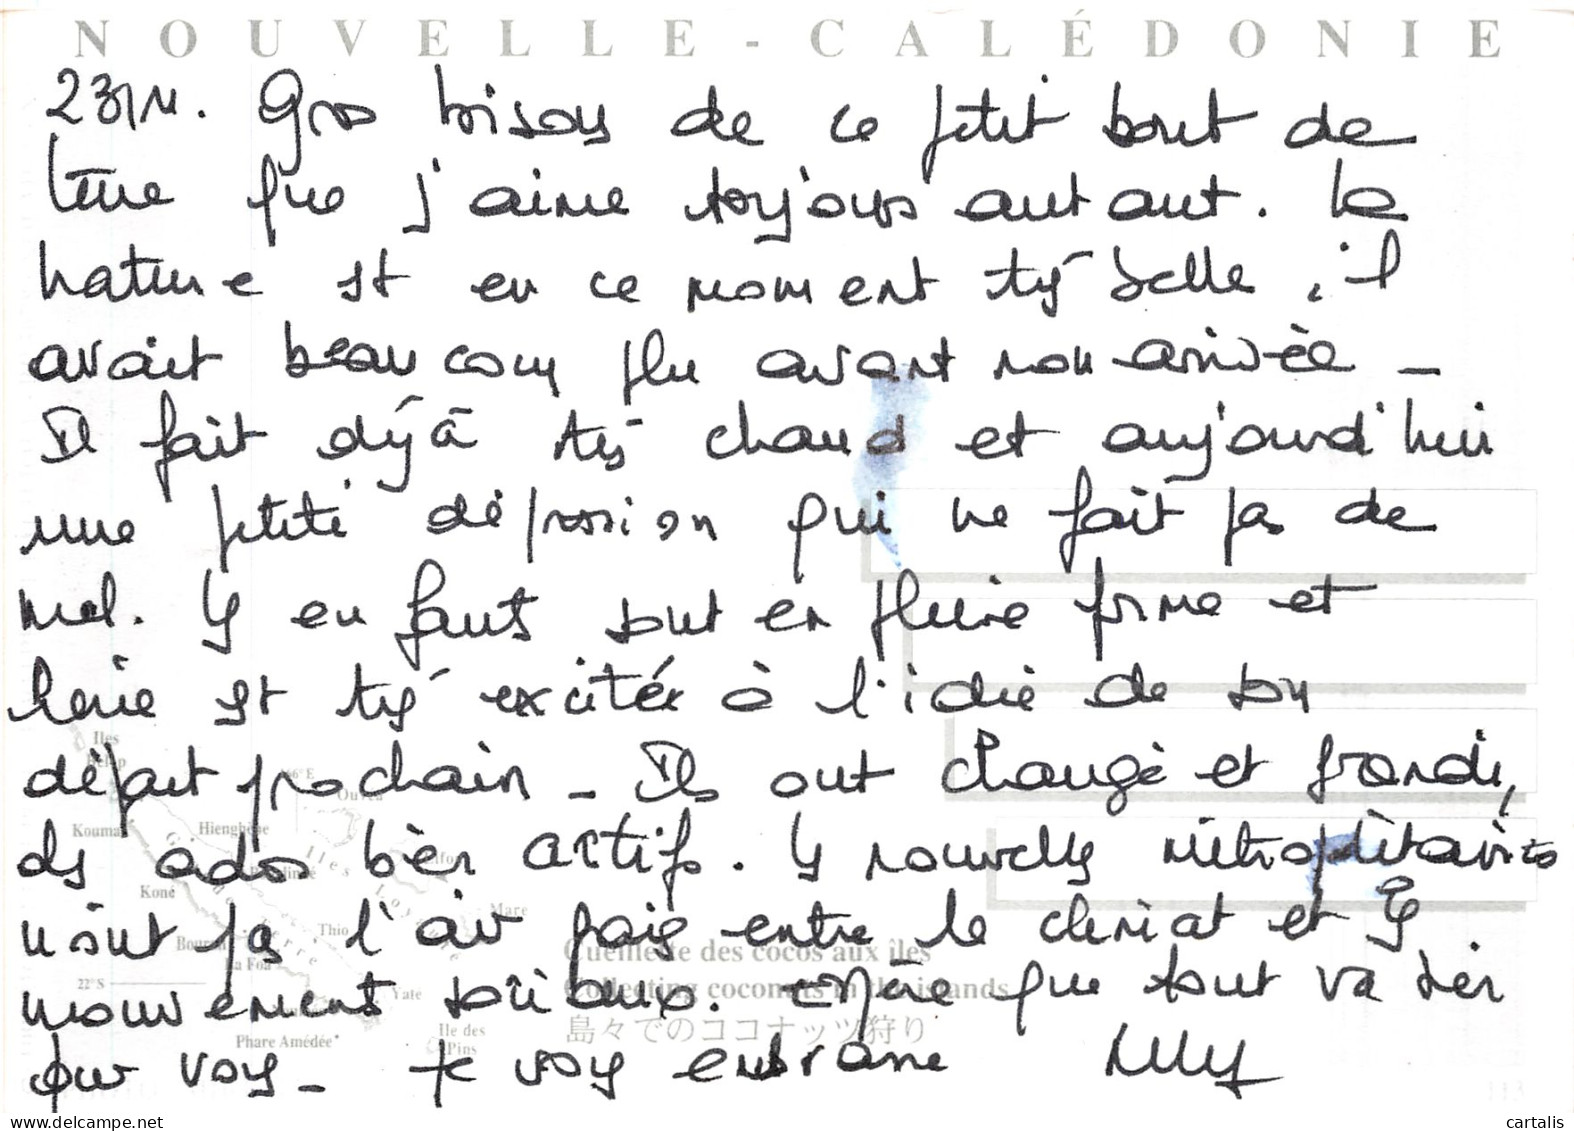 NOUVELLE-CALÉDONIE
23/11. Gros bisous de ce petit bout de
terre que j'aime toujours autant. La
nature est en ce moment très belle, il
avait beaucoup plu avant mon arrivée -
Il fait déjà très chaud et aujourd'hui
une petite dépression qui ne fait pas de
mal. Les enfants sont en pleine forme et
est très excitée à l'idée de son
départ prochain - Ils ont changé et grandi,
des ados bien actifs. Les nouvelles métropolitaines
n'ont pas l'air gaies entre le climat et les
mouvements sociaux. Espère que tout va bien
pour vous - Je vous embrasse
Iles
Belep
166° E
Ouvéa
Koumac
Hienghène
Grande Terre
Iles Loyauté
Lifou
Koné
Mare
Thio
Bourail
La Foa
22° S
Yate
Phare Amédée
Ile des
Pins
Cueillette des cocos aux îles
Collecting coconuts in the islands
島々でのココナッツ狩り
113
www.delcampe.net
cartalis